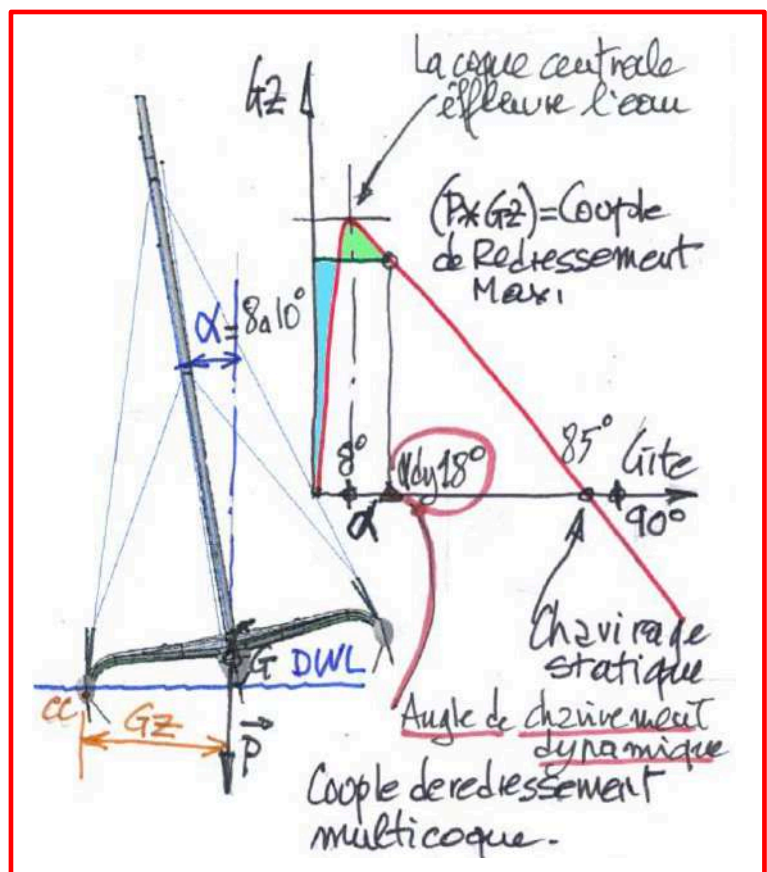 La coque centrale
éffleure l'eau
GZ
(P*GZ)=Couple
de Redressement
Maxi
α=8à10°
8°
αdy18°
85°
Gîte
α
90°
Chavirage
statique
G
DWL
CC
GZ
P
Angle de chavirement
dynamique
Couple de redressement
multicoque.